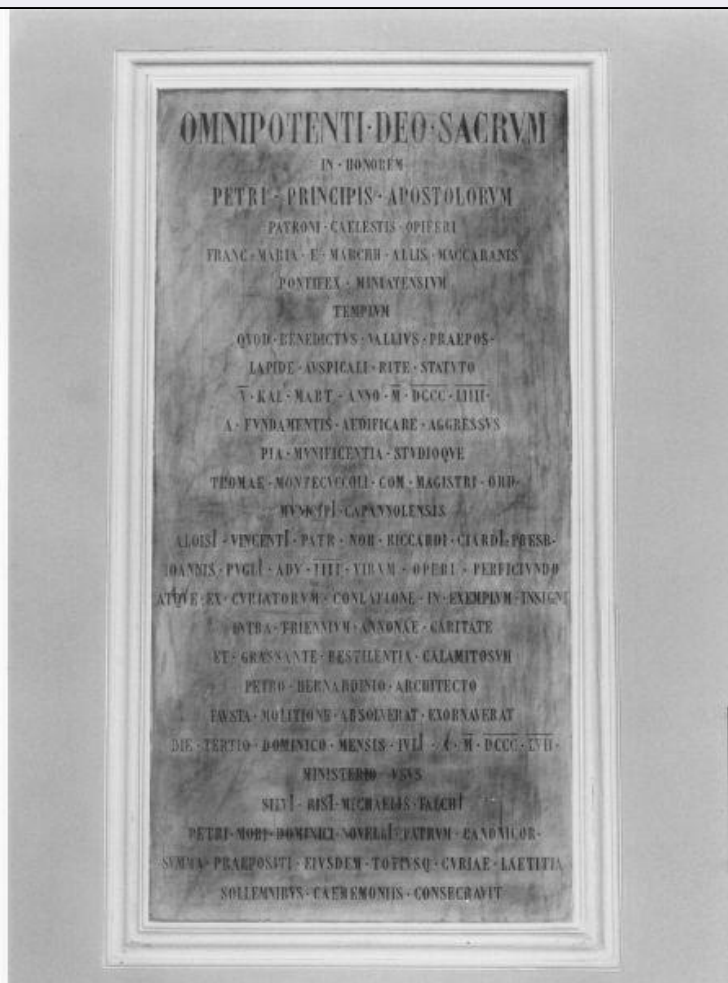 OMNIPOTENTI·DEO·SACRVM
IN·HONOREM
PETRI·PRINCIPIS·APOSTOLORVM
PATRONI·CAELESTIS·OPIFERI
FRANC·MARIA·E·MARCHH·ALLIS·MACCARANIS
PONTIFEX·MINIATENSIVM
TEMPLVM
QVOD·BENEDICTVS·VALLIVS·PRAEPOS·
LAPIDE·AVSPICALI·RITE·STATVTO
V·KAL·MART·ANNO·M·DCCC·LIIII·
A·FVNDAMENTIS·AEDIFICARE·AGGRESSVS
PIA·MVNIFICENTIA·STVDIOQVE
THOMAE·MONTECVCCOLI·COM·MAGISTRI·ORD·
MVNICIPI·CAPANNOLENSIS
ALOISI·VINCENTI·PATR·NOB·RICCARDI·CIARDI·PRESB·
IOANNIS·PVGLI·ADV·IIII·VIRVM·OPERI·PERFICIVNDO
ATQVE·EX·CVRIATORVM·CONLATIONE·IN·EXEMPLVM·INSIGNI
INTRA·TRIENNIVM·ANNONAE·CARITATE
ET·GRASSANTE·PESTILENTIA·CALAMITOSVM
PETRO·BERNARDINIO·ARCHITECTO
FAVSTA·MOLITIONE·ABSOLVERAT·EXORNAVERAT
DIE·TERTIO·DOMINICO·MENSIS·IVLI·M·DCCC·LVII·
MINISTERIO·VSVS
SILVI·RISI·MICHAELIS·FALCHI
PETRI·MORI·DOMINICI·NOVELLI·PATRVM·CANONICOR·
SVMMA·PRAEPOSITI·EIVSDEM·TOTIVSQ·CVRIAE·LAETITIA
SOLLEMNIBVS·CAEREMONIIS·CONSECRAVIT